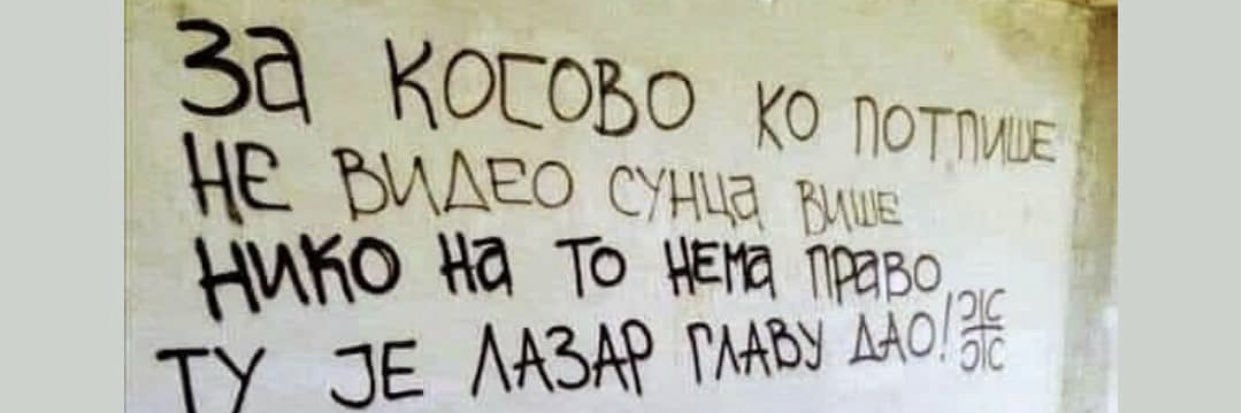 За КОСОВО КО ПОТПИШЕ
НЕ ВИДЕО СУНЦа ВИШЕ
НИКО На ТО НЕМа ПРаВО
ТУ ЈЕ ЛАЗАР ГЛАВУ ДАО!